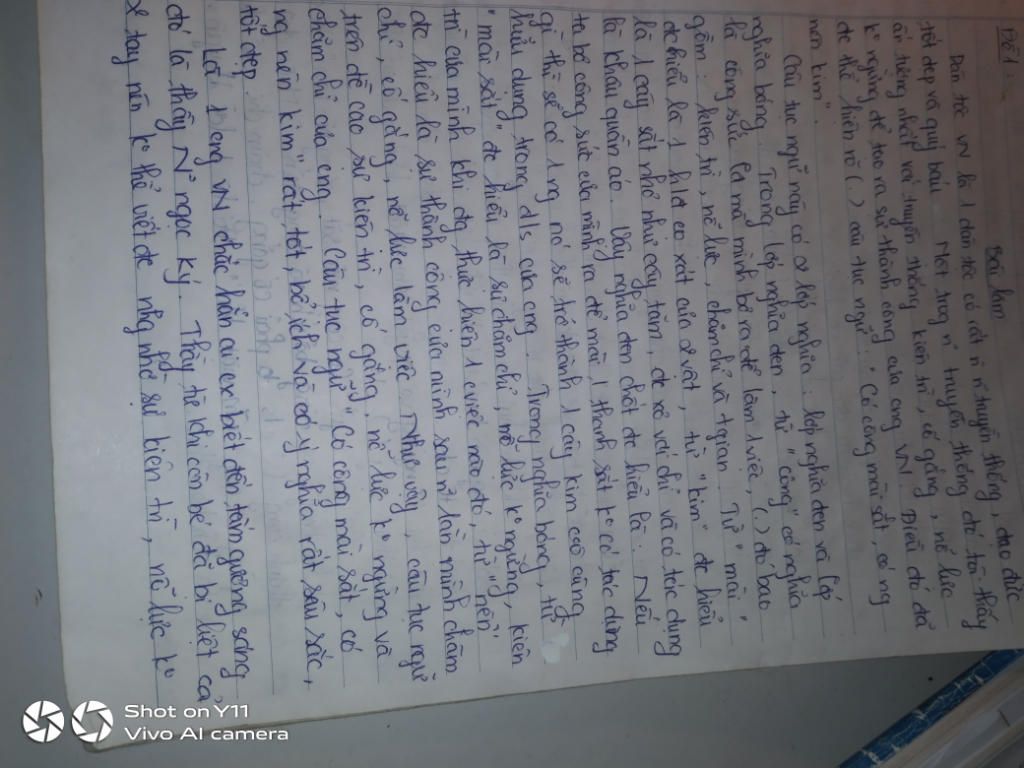 Đề 1:
Bài làm
Dân tộc VN là 1 dân tộc có rất n` truyền thống, đạo đức
tốt đẹp và quý báu. Một trong n~ truyền thống đó tôi thấy
ấn tượng nhất với truyền thống kiên trì, cố gắng, nỗ lực
kº ngừng để tạo ra sự thành công của ông VN. Điều đó đã
đc thể hiện rõ (.) câu tục ngữ: "Có công mài sắt, có ng
nên kim".
Câu tục ngữ này có 2 lớp nghĩa: lớp nghĩa đen và lớp
nghĩa bóng. Trong lớp nghĩa đen, từ "công" có nghĩa
là công sức ta mà mình bỏ ra để làm 1 việc, (.) đó bao
gồm: kiên trì, nỗ lực, chăm chỉ và tgian. Từ "mài"
đc hiểu là 1 hđ cọ xát của 2 vật, từ "kim" đc hiểu
là 1 cây sắt nhỏ như cây tăm, đc xỏ với chỉ và có tác dụng
là khâu quần áo. Vậy nghĩa đen chốt đc hiểu là: Nếu
ta bỏ công sức của mình ra để mài 1 thanh sắt kº có tác dụng
gì thì sẽ có 1 ng nó sẽ trở thành 1 cây kim cso công
hữu dụng trong đ/s của cng. Trong nghĩa bóng, từ
"mài sắt" đc hiểu là sự chăm chỉ, nỗ lực kº ngừng, kiên
trì của mình khi đg thực hiện 1 việc nào đó, từ "nên"
đc hiểu là sự thành công của mình sau n~ lần mình chăm
chỉ, cố gắng, nỗ lực làm việc. Như vậy, câu tục ngữ
trên đề cao sự kiên trì, cố gắng, nỗ lực kº ngừng và
chăm chỉ của cng. Câu tục ngữ "Có công mài sắt, có
ng nên kim" rất tốt, bổ ích và có ý nghĩa rất sâu sắc,
tốt đẹp.
Là 1 ng VN chắc hẳn ai cx biết đến tấm gương sáng,
đó là thầy N~ Ngọc Ký. Thầy từ khi còn bé đã bị liệt cả
2 tay nên kº thể viết đc nhg nhờ sự kiên trì, nỗ lực kº
Shot on Y11
Vivo AI camera